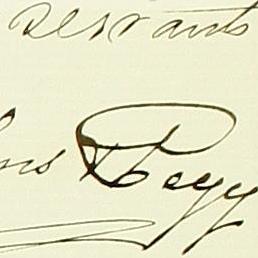 servants
Pegg